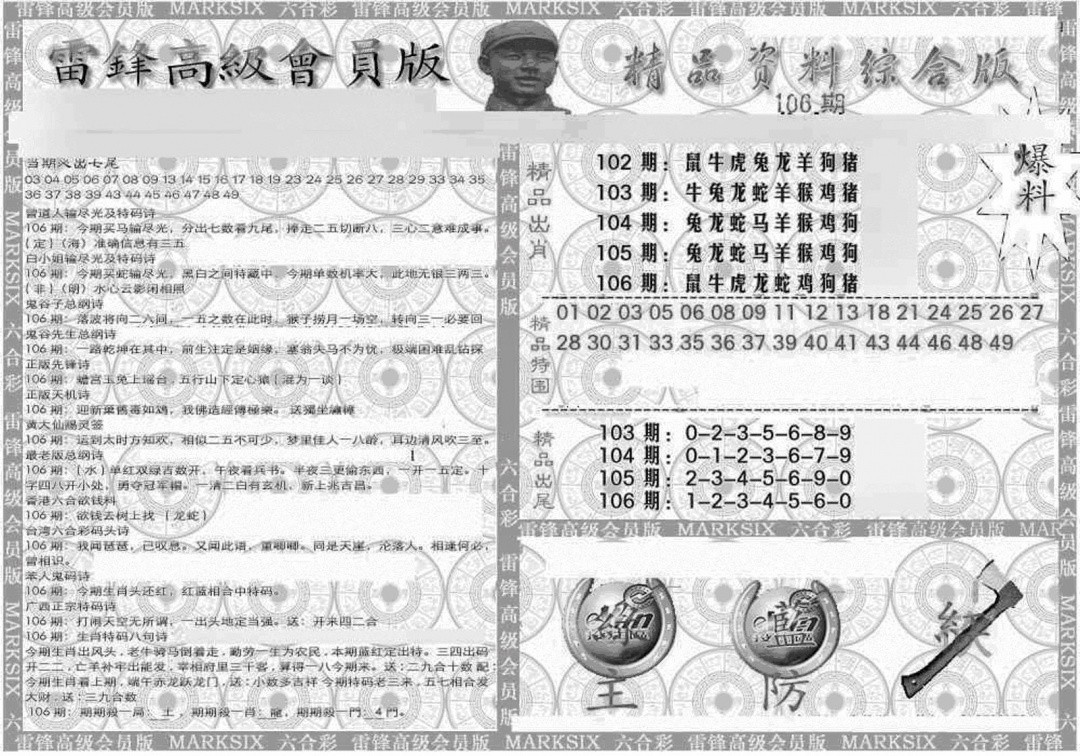 雷锋高级会员版 MARKSIX 六合彩 雷锋高级会员版 MARKSIX 六合彩 雷锋高级会员版 MARKSIX 六合彩
雷鋒高級會員版
精品資料綜合版
106.期
爆料
当期突出七尾
03 04 05 06 07 08 09 13 14 15 16 17 18 19 23 24 25 26 27 28 29 33 34 35
36 37 38 39 43 44 45 46 47 48 49
曾道人输尽光及特码诗
106 期：今期买马输尽光，分出七数看九尾，捧走二五切断八，三心二意难成事。
{定}〈海〉准确信息有三五
白小姐输尽光及特码诗
106 期：今期买蛇输尽光，黑白之间特藏中，今期单数机率大，此地无银三两三。
{非}〈明〉水心云影闲相照
鬼谷子总纲诗
106 期：落波将向二六同，一五之数在此时，猴子捞月一场空，转向三一必要回
鬼谷先生总纲诗
106 期：一路乾坤在其中，前生注定是姻缘，塞翁失马不为忧，极端困难乱钻探
正版先锋诗
106 期：蟾宫玉兔上瑶台，五行山下定心猿{混为一谈}
正版天机诗
106 期：迎新棄舊毒如鴆，我佛造經傳極樂。送獨坐
黄大仙赐灵签
106 期：运到太时方知欢，相似二五不可少，梦里佳人一八龄，耳边清风吹三至。
最老版总纲诗
106 期：{水}单红双绿吉数开，午夜看兵书。半夜三更偷东西，一开一五定。十
字四八开小处，勇夺冠军帽。一清二白有玄机，新上兆吉昌。
香港六合欲钱料
106 期：欲钱去树上找 {龙蛇}
台湾六合彩码头诗
106 期：我闻琵琶，已叹息。又闻此语，重唧唧。同是天崖，沦落人。相逢何必，
曾相识。
苯人鬼码诗
106 期：今期生肖头还红，红蓝相合中特码。
广西正宗特码诗
106 期：打闹天空无所谓，一出头地定当强。送：开来四二合
106 期：生肖特码八句诗
今期生肖出风头，老牛骑马倒着走，勤劳一生为农民，本期蓝红定出特。三四出码
开二二，亡羊补牢出能发，宰相府里三千客，算得一八今期来。送：二九合十数 配：
今期生肖看上期，端午赤龙跃龙门，送：小数多吉祥 今期特码老三来，五七相合发
大财，送：三九合数
106 期：期期殺一局：土，期期殺一肖：龍，期期殺一門：4 門。
精品出肖
102 期：鼠牛虎兔龙羊狗猪
103 期：牛兔龙蛇羊猴鸡猪
104 期：兔龙蛇马羊猴鸡狗
105 期：兔龙蛇马羊猴鸡狗
106 期：鼠牛虎龙蛇鸡狗猪
精品特围
01 02 03 05 06 08 09 11 12 13 18 21 24 25 26 27
28 30 31 33 35 36 37 39 40 41 43 44 46 48 49
精品出尾
103 期：0-2-3-5-6-8-9
104 期：0-1-2-3-6-7-9
105 期：2-3-4-5-6-9-0
106 期：1-2-3-4-5-6-0
雷锋高级会员版 MARKSIX 六合彩 雷锋高级会员版 MARK
王
防
雷锋高级会员版 MARKSIX 六合彩 雷锋高级会员版 MARKSIX 六合彩 雷锋高级会员版 MARKSIX 六合彩